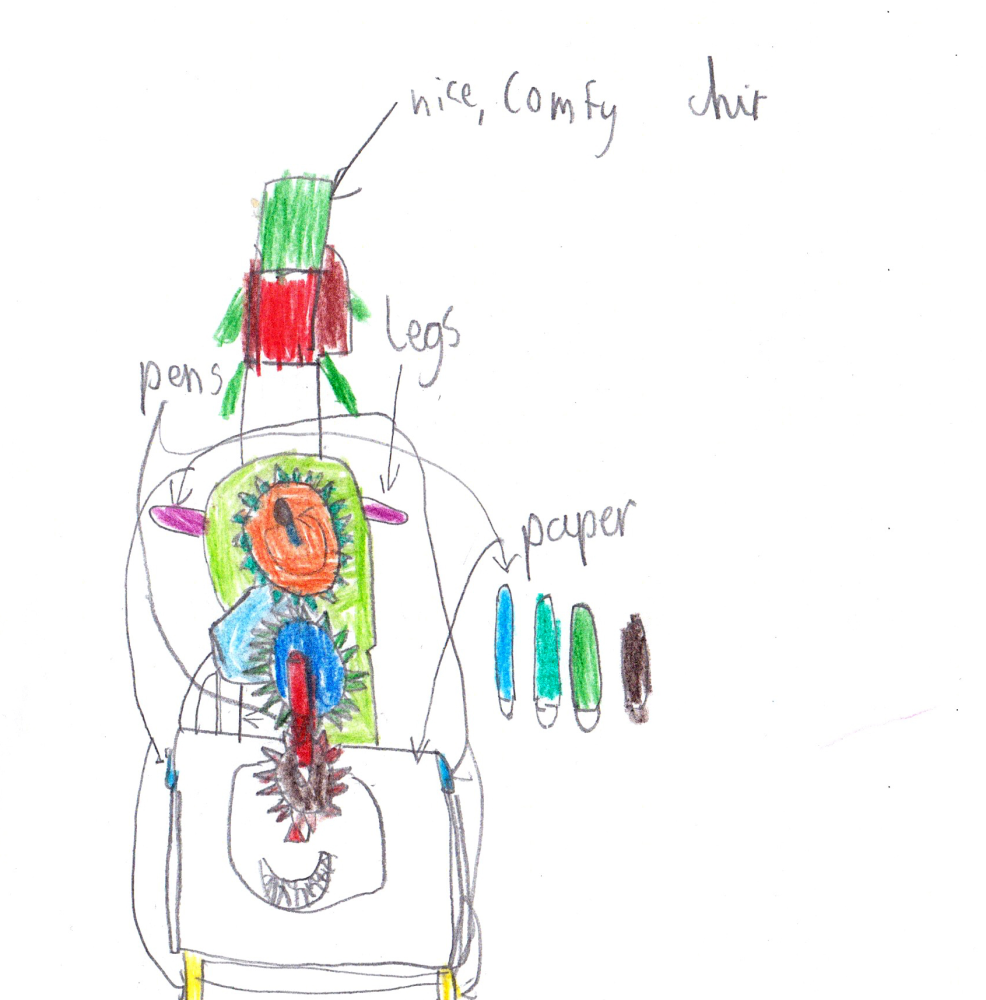 nice, Comfy chir
legs
pens
paper